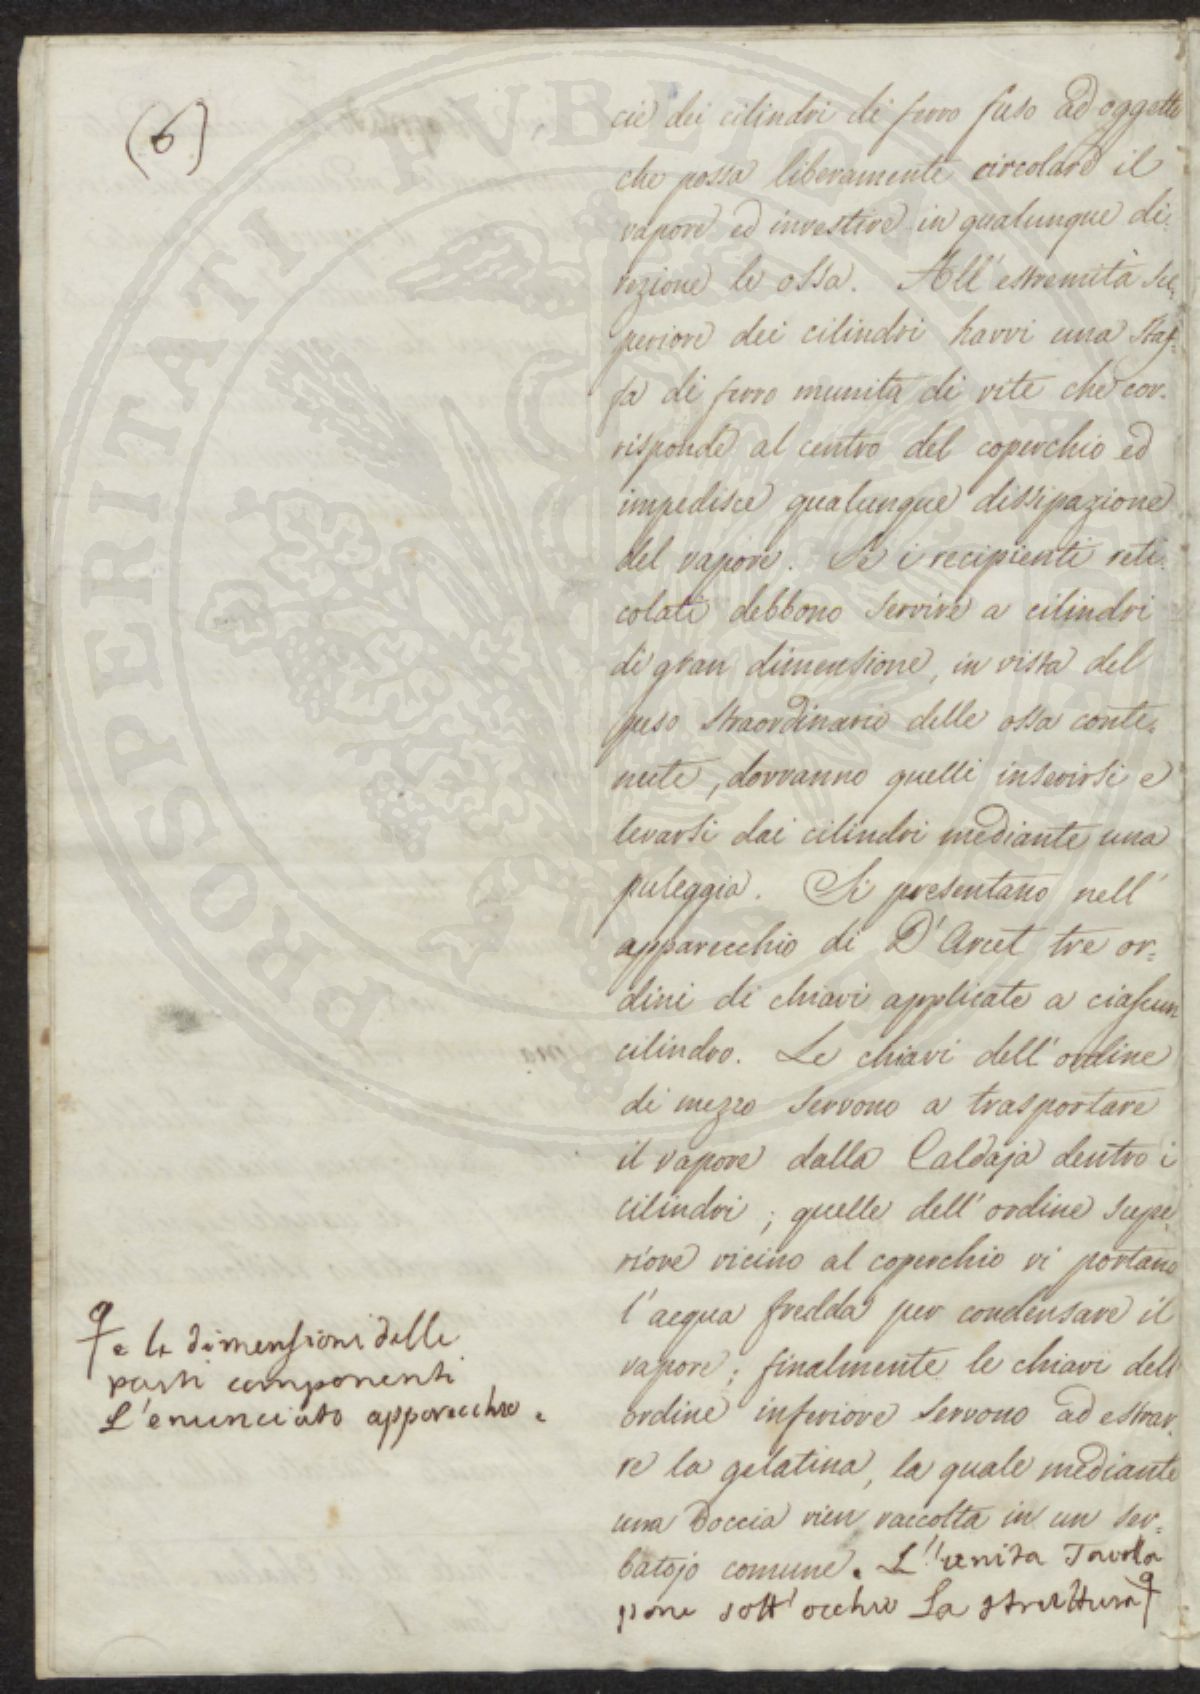 (6)
cie dei cilindri di ferro fuso ad oggetto
che possa liberamente circolare il
vapore ed investire in qualunque di-
rezione le ossa. All' estremità su-
periore dei cilindri havvi una staf-
fa di ferro munita di vite che cor-
risponde al centro del coperchio ed
impedisce qualunque dissipazione
del vapore. Se i recipienti reti-
colati debbono servire a cilindri
di gran dimensione, in vista del
peso straordinario delle ossa conte-
nute, dovranno quelli inserirsi e
levarsi dai cilindri mediante una
puleggia. Si presentano nell'
apparecchio di D'Arcet tre or=
dini di chiavi applicate a ciascun
cilindro. Le chiavi dell' ordine
di mezzo servono a trasportare
il vapore dalla Caldaja dentro i
cilindri; quelle dell' ordine supe-
riore vicino al coperchio vi portano
l'acqua fredda per condensare il
vapore; finalmente le chiavi dell'
ordine inferiore servono ad estrar-
re la gelatina, la quale mediante
una Doccia vien raccolta in un ser=
batojo comune. L' unita Tavola
pone sott' occhio la struttura
e le dimensioni delle
parti componenti
L'enunciato apparecchio.
PROSPERITATI PUBLICAE